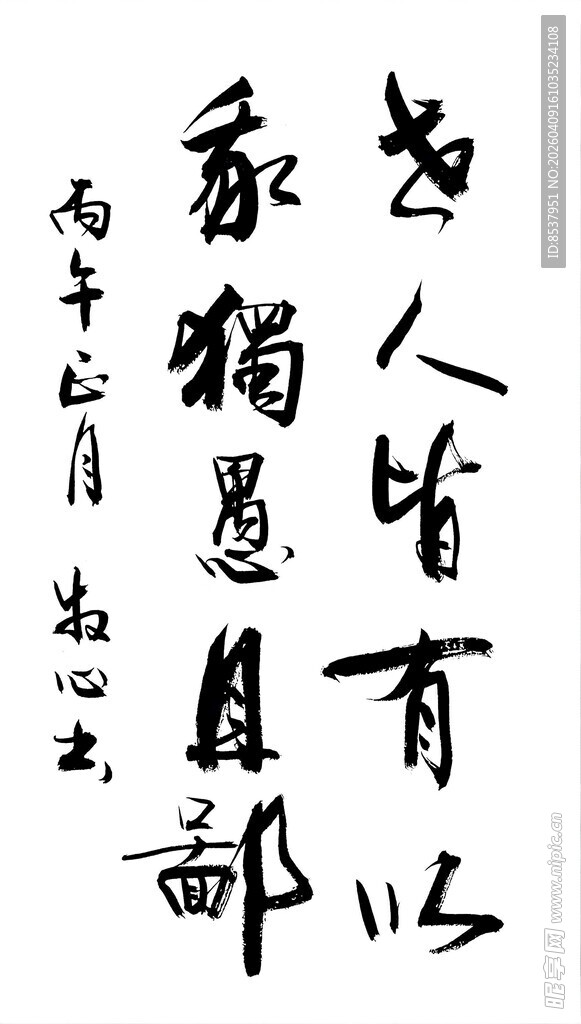 世人皆有以
我獨愚且鄙
丙午正月 牧心书
ID:8537951 NO:20260409161035234108
昵享网 www.nipic.cn